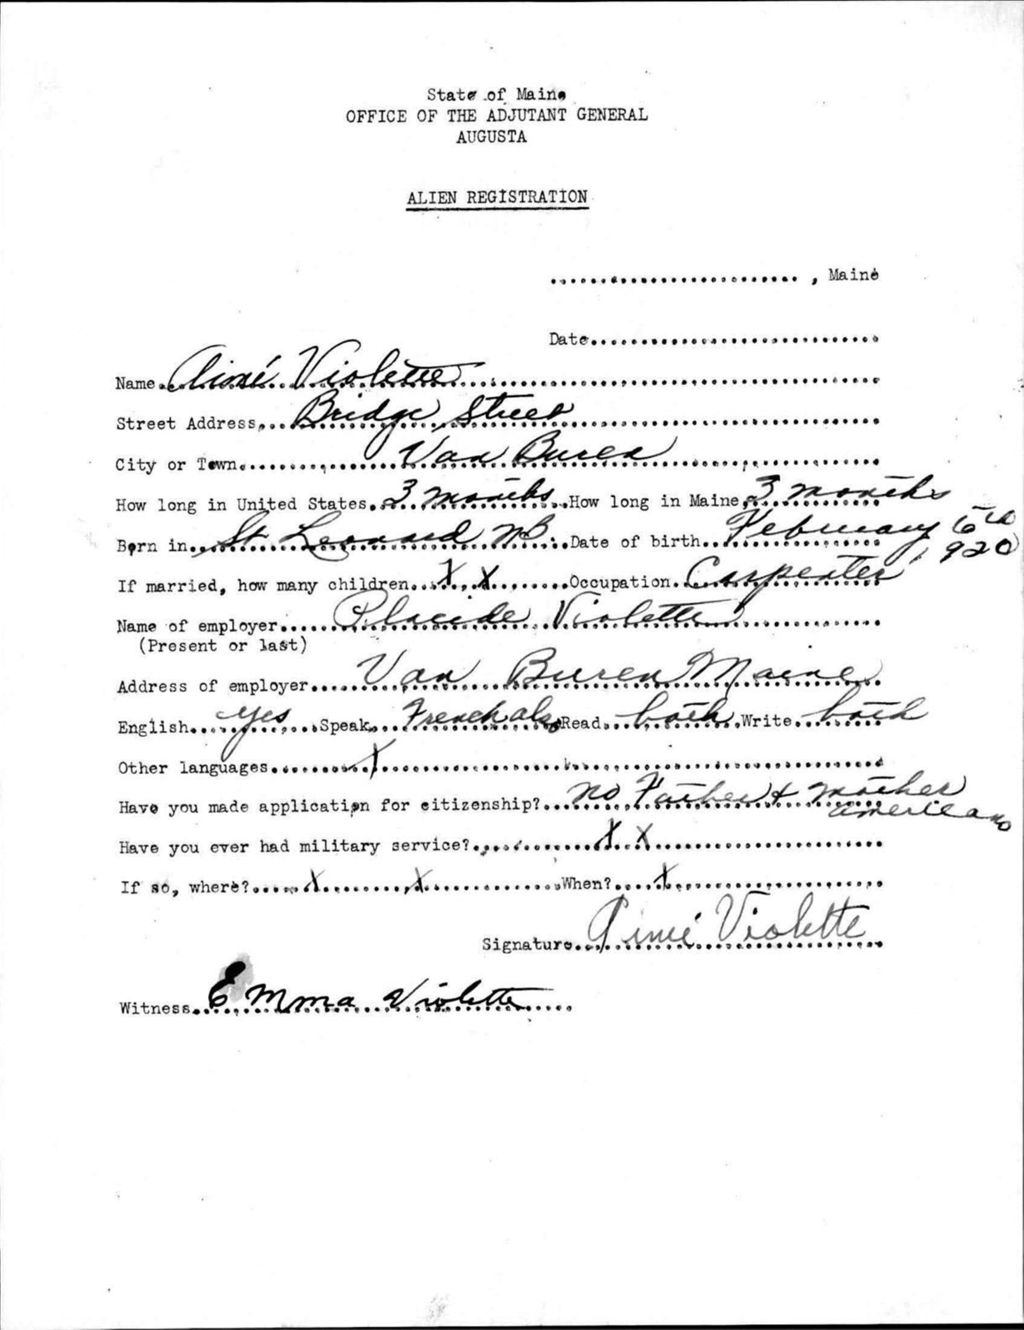 State of Maine
OFFICE OF THE ADJUTANT GENERAL
AUGUSTA
ALIEN REGISTRATION
........................, Maine
Date............................
Name Aimé Violette
Street Address Bridge Street
City or Town Van Buren
How long in United States 3 months How long in Maine 3 months
Born in St Leonard NB Date of birth February 6th 1920
If married, how many children X X Occupation Carpenter
Name of employer Placide Violette
(Present or last)
Address of employer Van Buren Maine
English yes Speak French also Read both Write both
Other languages X
Have you made application for citizenship? no Father & mother americans
Have you ever had military service? X X
If so, where? X X When? X
Signature Aimé Violette
Witness Emma Violette